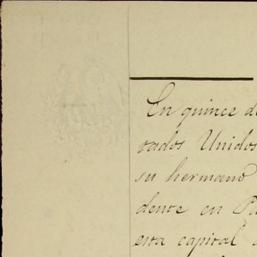 En quince d
tados Unidos
su hermano
dente en
esta capital